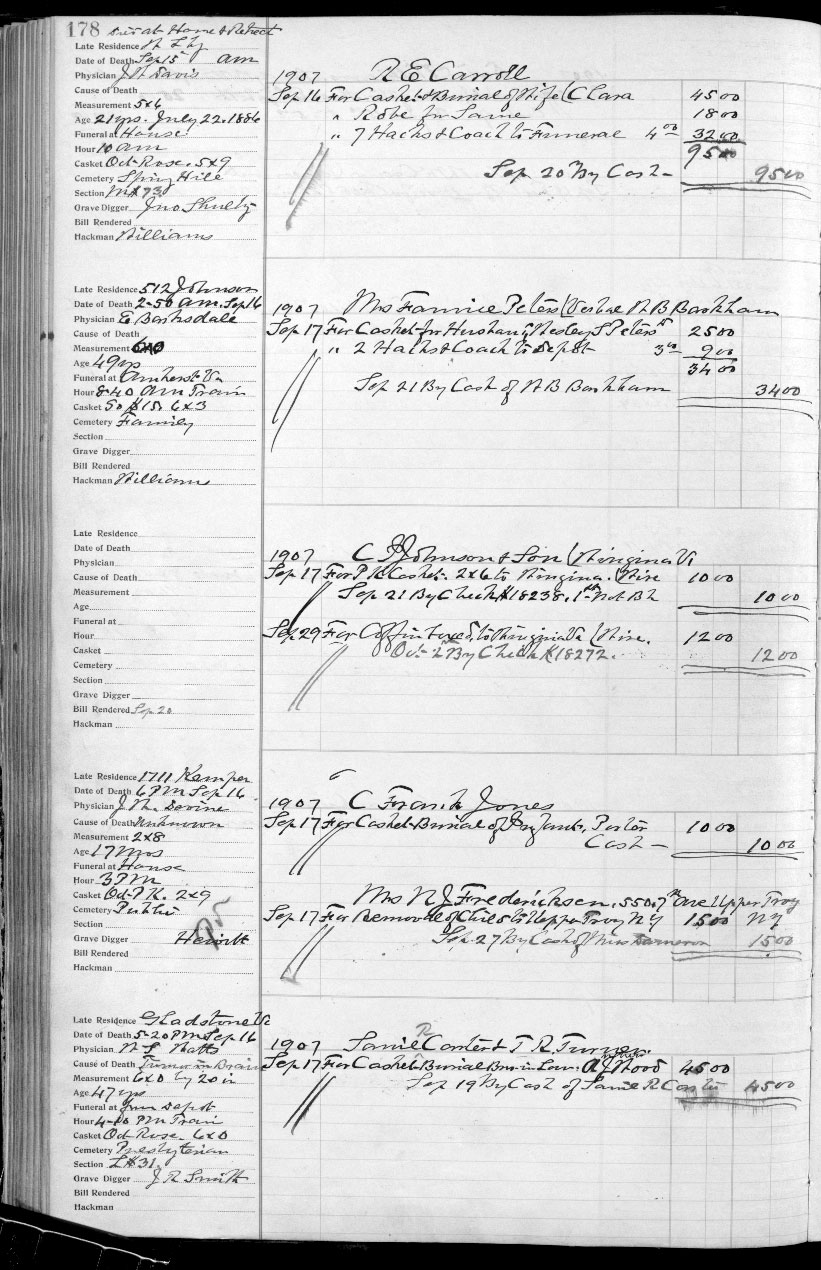 178 Died at Home & Retreat
Late Residence W Lby
Date of Death Sep 15 am
Physician J W Davis
Cause of Death
Measurement 5x6
Age 21 yrs. July 22. 1886
Funeral at House
Hour 10 am
Casket Oct-Rose. 5x9
Cemetery Spring Hill
Section
Grave Digger Jno Shultz
Bill Rendered
Hackman Williams
1907 R E Carroll
Sep 16 For Casket & Burial of Wife (Clara 45 00
" Robe for Same 18 00
" 7 Hacks & Coach to Funeral 4 00 32 00
95 00
Sep 20 By Cash - 95 00
Late Residence 512 Johnson
Date of Death 2-50 am. Sep 16
Physician E Barksdale
Cause of Death
Measurement 6x0
Age 49 yrs
Funeral at Amherst Va
Hour 8-40 am Train
Casket 50 #15. 6x3
Cemetery Family
Section
Grave Digger
Bill Rendered
Hackman Williams
1907 Mrs Fannie Peters (Verbal W B Barkham
Sep 17 For Casket for Husband, Wesley S Peters 25 00
" 2 Hacks & Coach to Depot 3 00 9 00
34 00
Sep 21 By Cash of W B Barkham 34 00
Late Residence
Date of Death
Physician
Cause of Death
Measurement
Age
Funeral at
Hour
Casket
Cemetery
Section
Grave Digger
Bill Rendered Sep 20
Hackman
1907 C J Johnson & Son (Wingina Va
Sep 17 For P K Casket. 2x6 to Wingina. (Wire 10 00
Sep 21 By Check #18238. 1st Nat Bk 10 00
Sep 29 For Coffin boxed, to Wingina Va (Wire. 12 00
Oct 2nd By Check #18272. 12 00
Late Residence 1711 Kemper
Date of Death 6 PM Sep 16
Physician J. W. Devine
Cause of Death Unknown
Measurement 2x8
Age 17 mos
Funeral at House
Hour 3 PM
Casket Oct-P.K. 2x9
Cemetery Public
Section
Grave Digger Hewitt
Bill Rendered
Hackman
1907 C Frank Jones
Sep 17 For Casket & Burial of Infant, Porter 10 00
Cash - 10 00
Mrs N J Frederickson. 550. 7th Ave Upper Troy
Sep 17 For Removal of Child to Upper Troy N Y 15 00 NY
Sep 27 By Cash of Miss Dameron 15 00
Late Residence Gladstone Va
Date of Death 5-20 PM Sep 16
Physician W S Watts
Cause of Death Tumor in Brain
Measurement 6x0 by 20 in
Age 47 yrs
Funeral at from Depot
Hour 4-10 PM Train
Casket Oct-Rose. 6x0
Cemetery Presbyterian
Section L #31.
Grave Digger J R Smith
Bill Rendered
Hackman
1907 Samil R Carter & T R Turner.
Sep 17 For Casket & Burial Bro in Law. A J Wood 45 00
Sep 19 By Cash of Samil R Carter 45 00